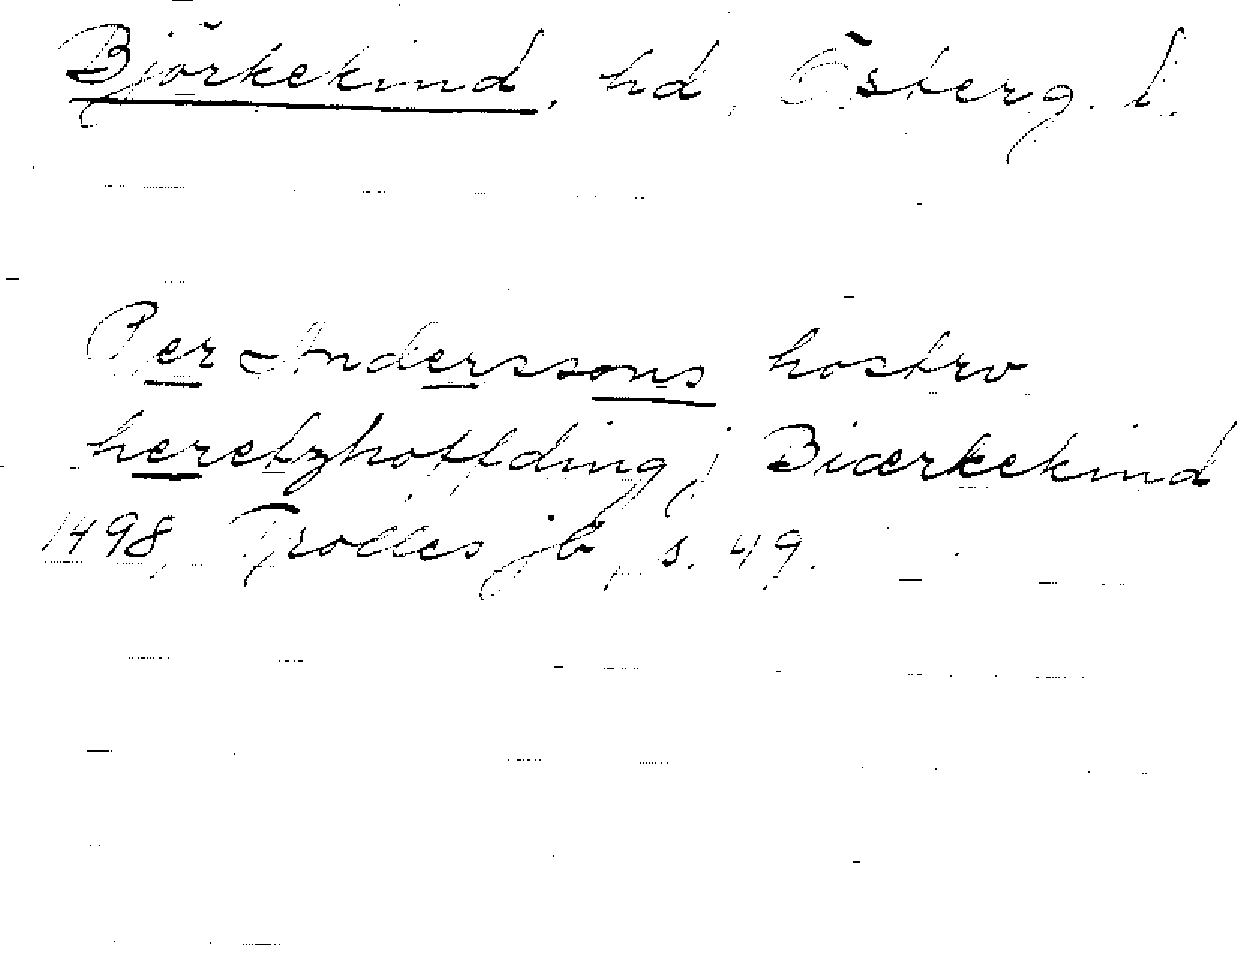 Björkekind, hd, Österg. l.
Per Anderssons hostro
heretzhoffding j Biærkekind
1498, Trolles jb, s. 49.